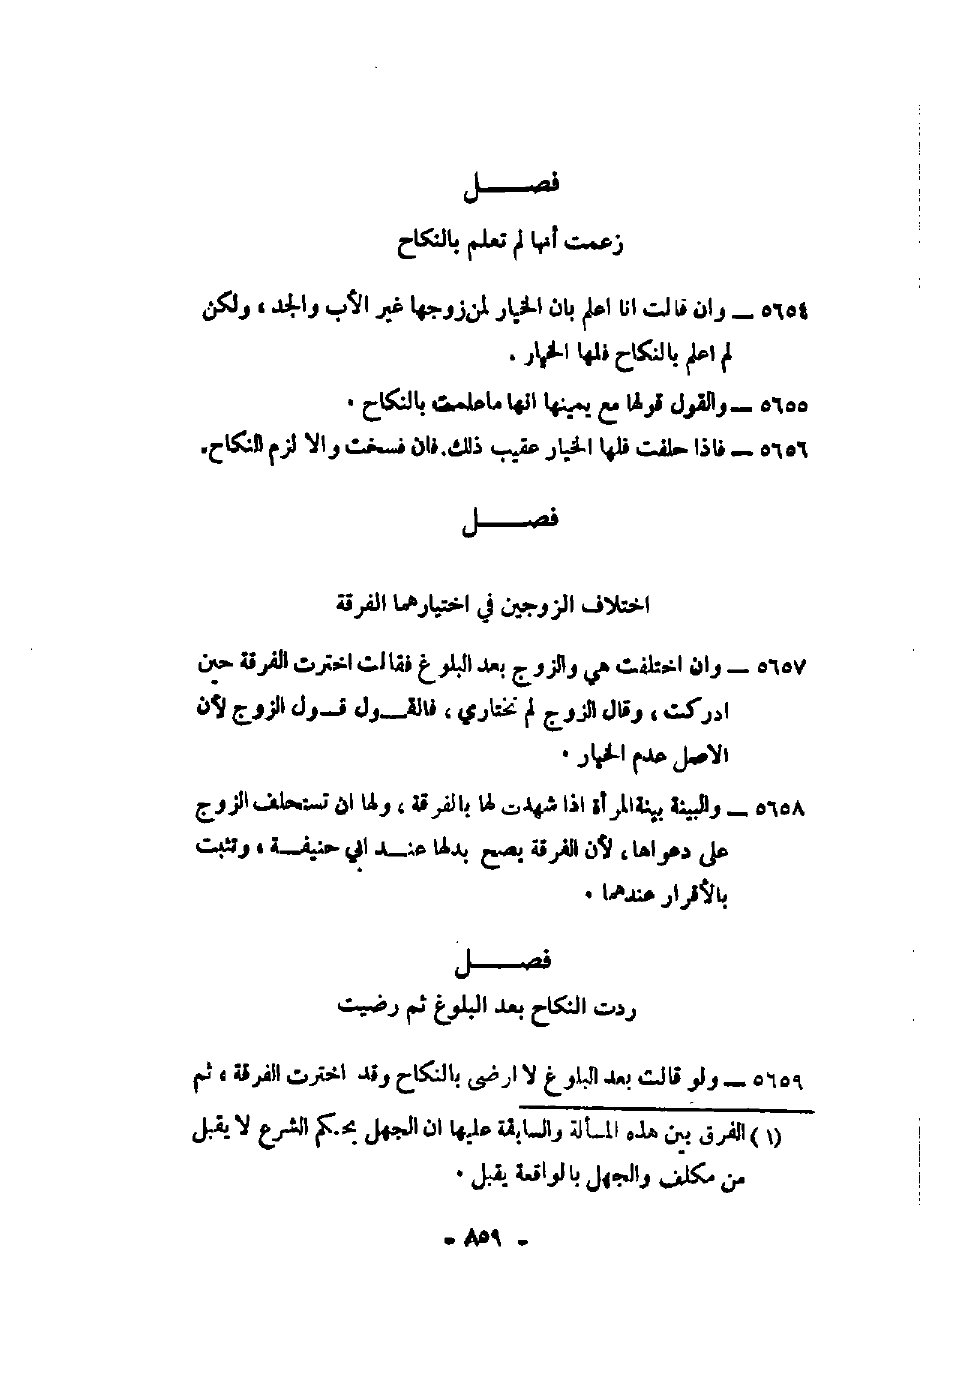 فصـــــل
زعمت أنها لم تعلم بالنكاح
٥٦٥٤ ــ وان قالت انا اعلم بان الخيار لمن زوجها غير الأب والجد ، ولكن
لم اعلم بالنكاح فلها الخيار .
٥٦٥٥ ــ والقول قولها مع يمينها انها ماعلمت بالنكاح .
٥٦٥٦ ــ فاذا حلفت فلها الخيار عقيب ذلك. فان فسخت والا لزم النكاح.
فصـــــل
اختلاف الزوجين في اختيارهما الفرقة
٥٦٥٧ ــ وان اختلفت هي والزوج بعد البلوغ فقالت اخترت الفرقة حين
ادركت ، وقال الزوج لم تختاري ، فالقـــول قــول الزوج لأن
الاصل عدم الخيار .
٥٦٥٨ ــ والبينة بينة المرأة اذا شهدت لها بالفرقة ، ولها ان تستحلف الزوج
على دعواها ، لأن الفرقة يصح بدلها عنـــد ابي حنيفـــة ، وتثبت
بالأقرار عندهما .
فصـــــل
ردت النكاح بعد البلوغ ثم رضيت
٥٦٥٩ ــ ولو قالت بعد البلوغ لا ارضى بالنكاح وقد اخترت الفرقة ، ثم
(١) الفرق بين هذه المسألة والسابقة عليها ان الجهل بحكم الشرع لا يقبل
من مكلف والجهل بالواقعة يقبل .
- ٨٥٩ -